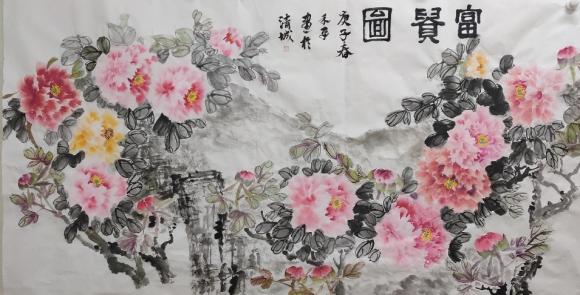 富貴圖
庚子春
畫於
清城